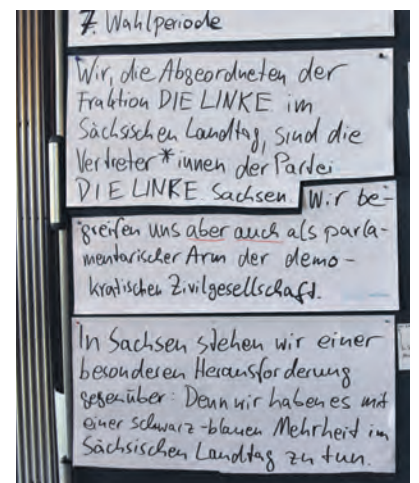 7. Wahlperiode
Wir, die Abgeordneten der
Fraktion DIE LINKE im
Sächsischen Landtag, sind die
Vertreter*innen der Partei
DIE LINKE Sachsen. Wir be-
greifen uns aber auch als parla-
mentarischer Arm der demo-
kratischen Zivilgesellschaft.
In Sachsen stehen wir einer
besonderen Herausforderung
gegenüber: Denn wir haben es mit
einer schwarz-blauen Mehrheit im
Sächsischen Landtag zu tun.